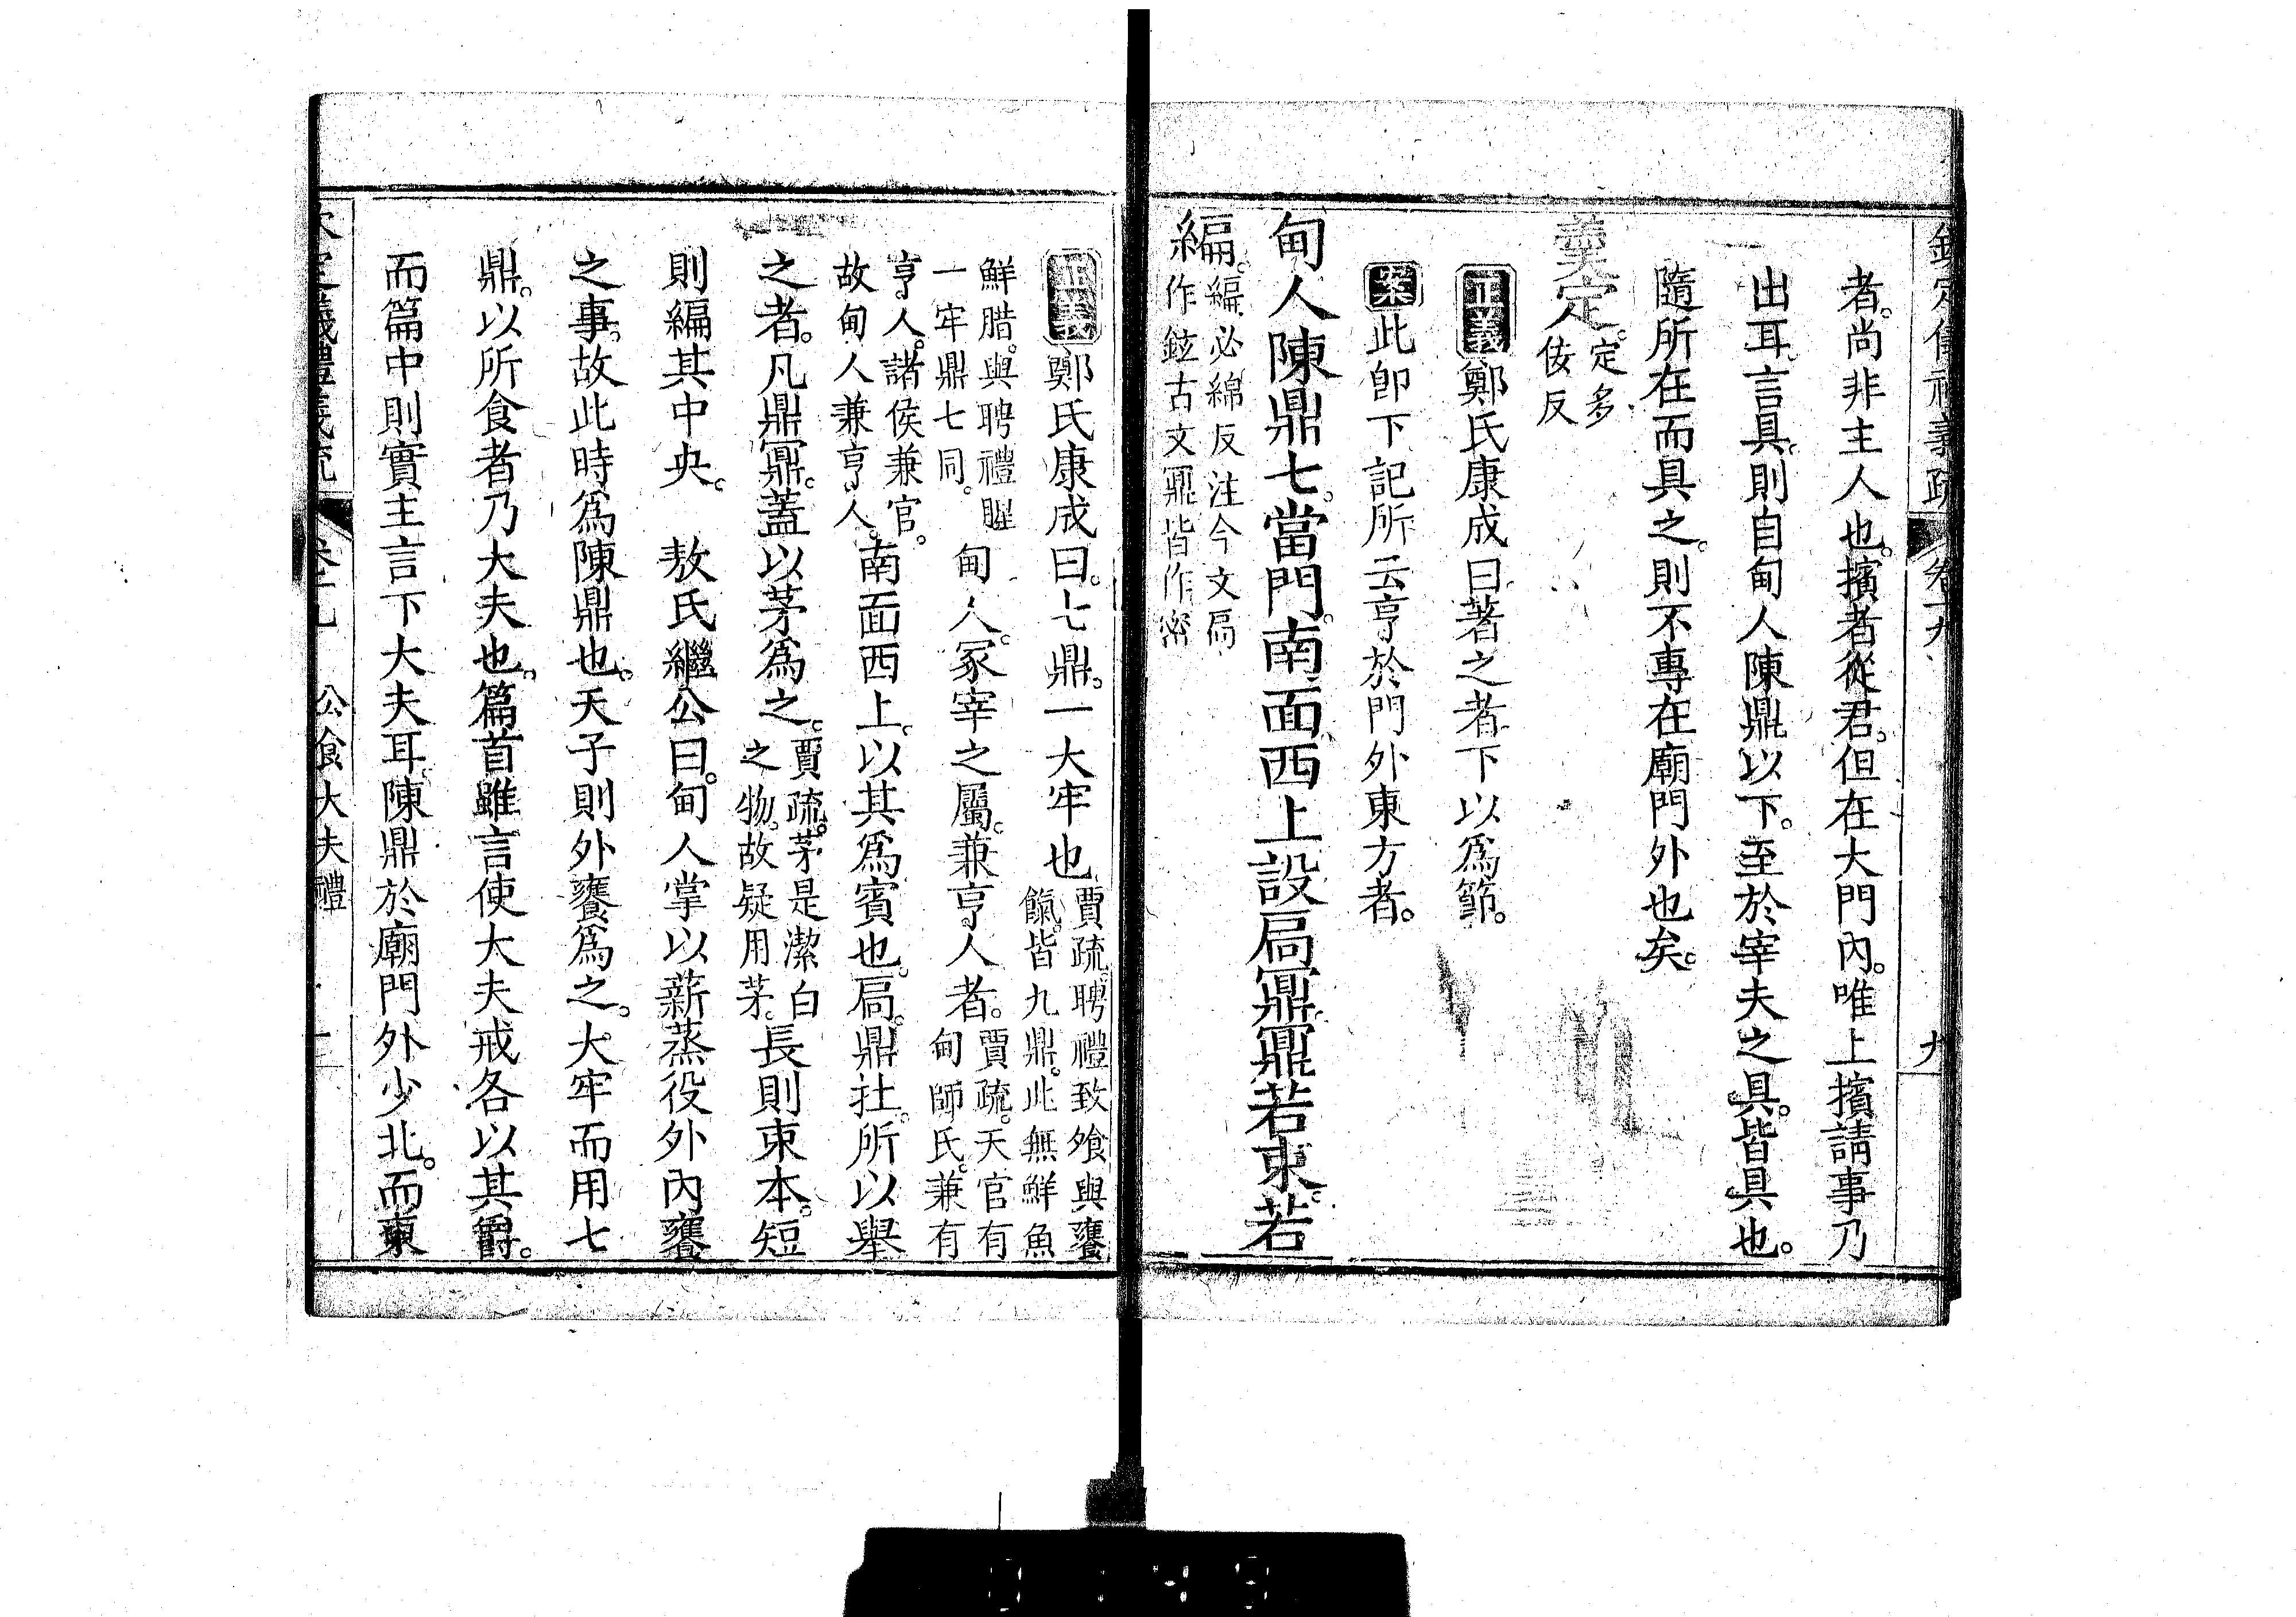 欽定儀禮義疏 卷十九 九
者。尚非主人也。擯者從君。但在大門內。唯上擯請事乃
出耳。言具。則自甸人陳鼎以下。至於宰夫之具。皆具也。
隨所在而具之。則不專在廟門外也矣。
羹定。定多
佞反
正義鄭氏康成曰著之者。下以爲節。
案此卽下記所云亨於門外東方者。
甸人陳鼎七。當門。南面西上。設扃鼏。鼏若束。若
編。編。必綿反注今文扃
作鉉古文鼏皆作密
正義鄭氏康成曰。七鼎。一大牢也。賈疏。聘禮致飧與饔
餼。皆九鼎。此無鮮魚
鮮腊。與聘禮腥
一牢鼎七同。甸人。冢宰之屬。兼亨人者。賈疏。天官有
甸師氏。兼有
亨人。諸侯兼官。
故甸人兼亨人。南面西上。以其爲賓也。扃。鼎扛。所以舉
之者。凡鼎鼏。蓋以茅爲之。賈疏。茅是潔白
之物。故疑用茅。長則束本。短
則編其中央。 敖氏繼公曰。甸人掌以薪蒸役外內饔
之事。故此時爲陳鼎也。天子則外饔爲之。大牢而用七
鼎。以所食者乃大夫也。篇首雖言使大夫戒各以其爵。
而篇中則實主言下大夫耳陳鼎於廟門外少北。而東
欽定儀禮義疏 卷十九 公食大夫禮